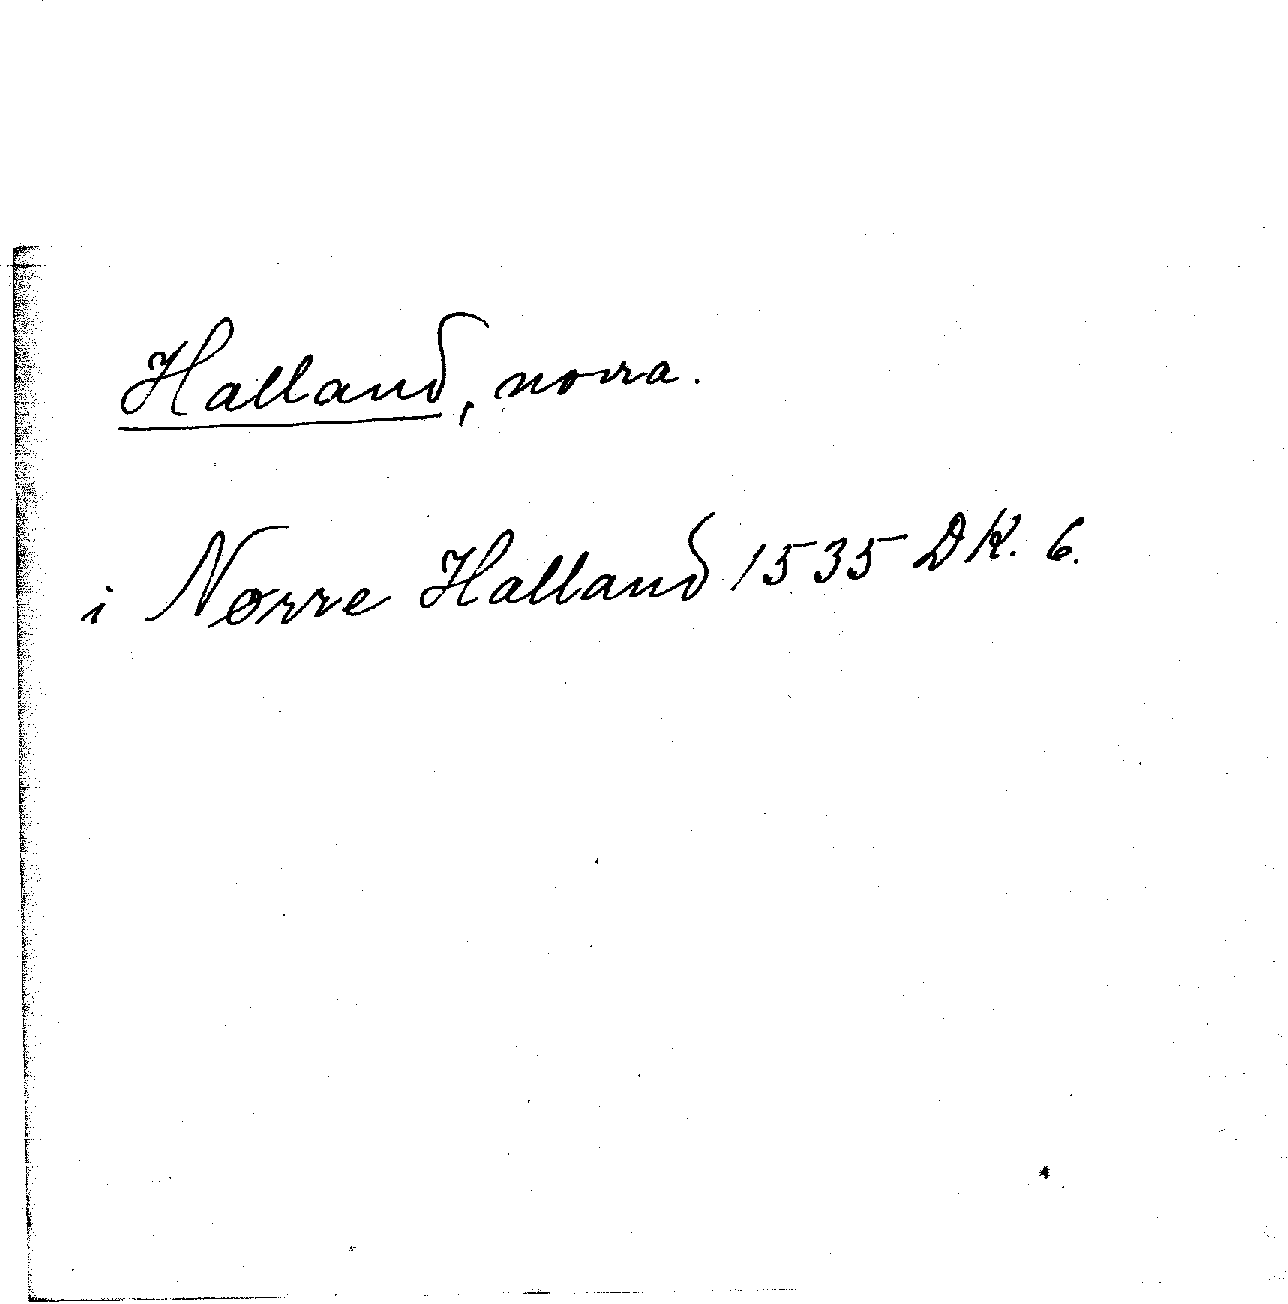 Halland, norra.
i Nørre Halland 1535 DK. 6.